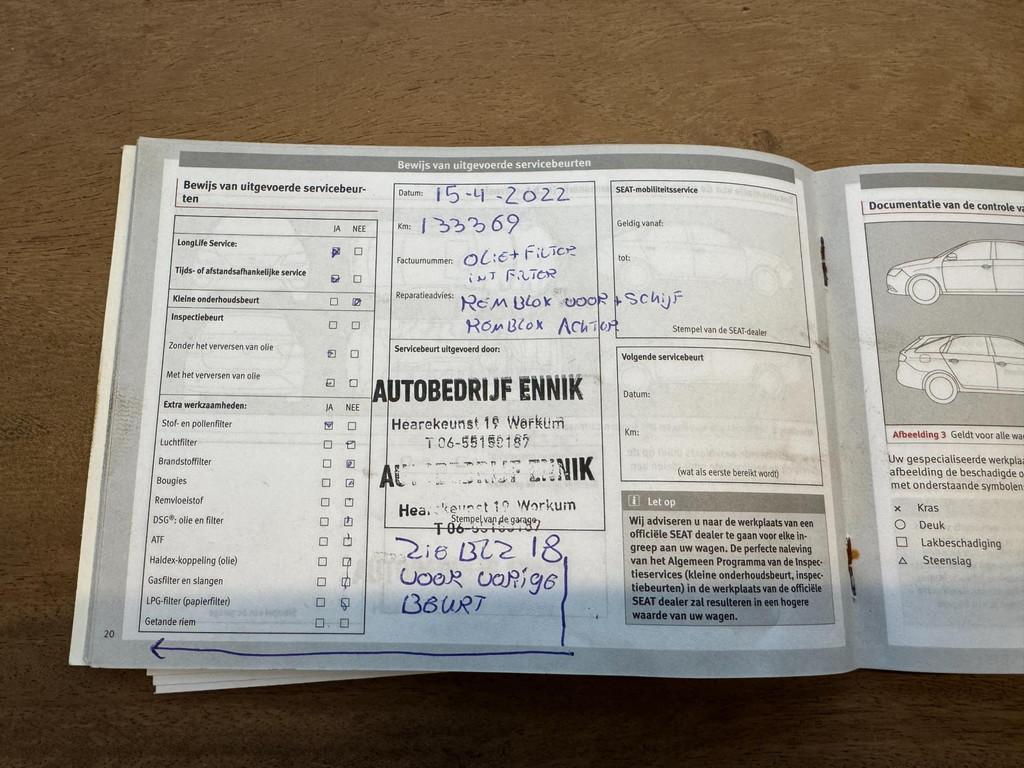 Bewijs van uitgevoerde servicebeurten
Bewijs van uitgevoerde servicebeur-
ten
JA NEE
LongLife Service:
Tijds- of afstandsafhankelijke service
Kleine onderhoudsbeurt
Inspectiebeurt
Zonder het verversen van olie
Met het verversen van olie
Extra werkzaamheden: JA NEE
Stof- en pollenfilter
Luchtfilter
Brandstoffilter
Bougies
Remvloeistof
DSG®: olie en filter
ATF
Haldex-koppeling (olie)
Gasfilter en slangen
LPG-filter (papierfilter)
Getande riem
20
Datum: 15-4-2022
Km: 133369
Factuurnummer: OLIE + FILTER
INT FILTER
Reparatieadvies: REMBLOK VOOR + SCHIJF
REMBLOK ACHTOR
Servicebeurt uitgevoerd door:
AUTOBEDRIJF ENNIK
Hearekeunst 19 Workum
T 06-55159187
AUTOBEDRIJF ENNIK
Hearekeunst 19 Workum
Stempel van de garage
ZIE BLZ 18
VOOR VORIGE
BEURT
SEAT-mobiliteitsservice
Geldig vanaf:
tot:
Stempel van de SEAT-dealer
Volgende servicebeurt
Datum:
Km:
(wat als eerste bereikt wordt)
i Let op
Wij adviseren u naar de werkplaats van een
officiële SEAT dealer te gaan voor elke in-
greep aan uw wagen. De perfecte naleving
van het Algemeen Programma van de Inspec-
tieservices (kleine onderhoudsbeurt, inspec-
tiebeurten) in de werkplaats van de officiële
SEAT dealer zal resulteren in een hogere
waarde van uw wagen.
Documentatie van de controle
Afbeelding 3 Geldt voor alle
Uw gespecialiseerde
afbeelding de beschadigde
met onderstaande symbolen
× Kras
○ Deuk
□ Lakbeschadiging
△ Steenslag